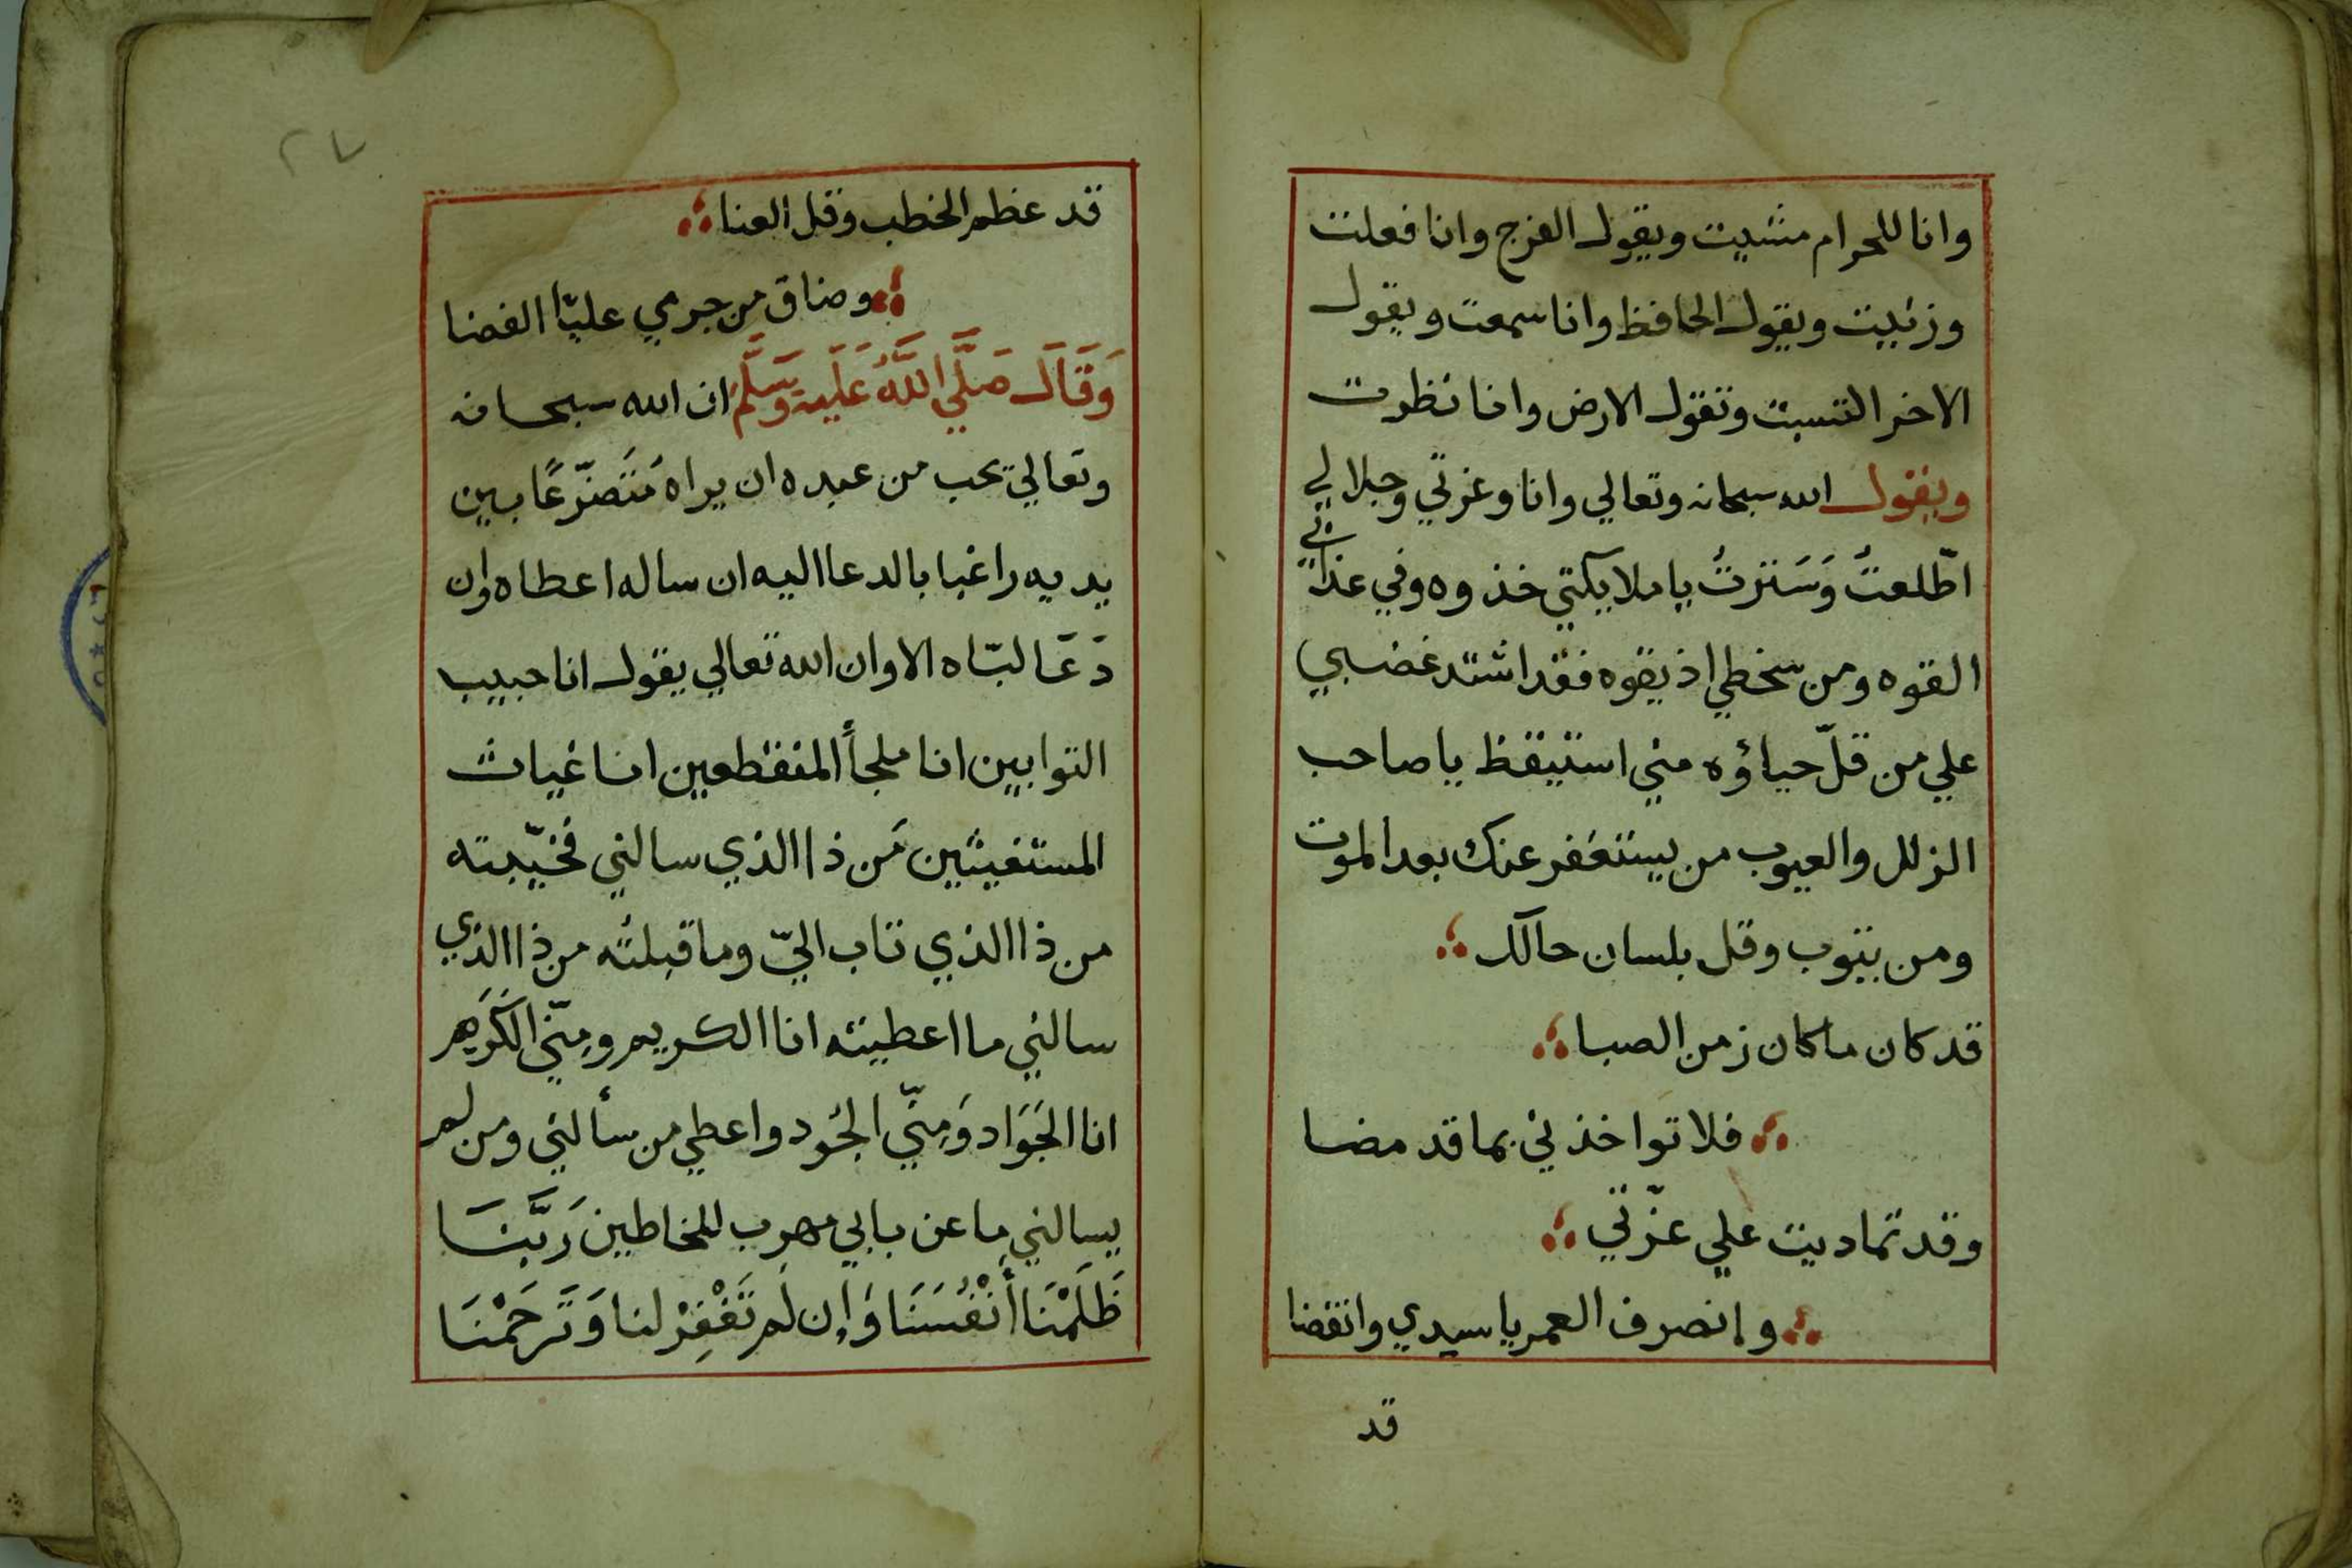 وانا للحرام مشيت ويقول الفرج وانا فعلت
وزنيت ويقول الحافظ وانا سمعت ويقول
الاخر التسبت وتقول الارض وانا نظرت
ويقول الله سبحانه وتعالي وانا وعزتي وجلالي
اطّلعتُ وَسَترتُ يا ملايكتي خذوه وفي عذابي
القوه ومن سخطي اذيقوه فقد اشتد غضبي
علي من قلّ حياؤه مني استيقظ يا صاحب
الزلل والعيوب من يستغفر عنك بعد الموت
ومن يتوب وقل بلسان حالك
قد كان ما كان زمن الصبا
فلا تواخذني بما قد مضا
وقد تماديت علي عزّتي
وانصرف العمر يا سيدي وانقضا
قد
٢٧
قد عظم الخطب وقل العنا
وضاق من جرمي عليّا الفضا
وَقَالَ صَلَّي اللَّهُ عَلَيه وَسَلَّم ان الله سبحانه
وتعالي يحب من عبده ان يراه مُتَضرّعًا بين
يديه راغبا بالدعا اليه ان ساله اعطاه وان
دَعَا لبّاه الا وان الله تعالي يقول انا حبيب
التوابين انا ملجأ المنقطعين انا غياث
المستغيثين مَن ذا الذي سالني فخيّبته
من ذا الذي تاب اليّ وما قبلتُه من ذا الذي
سالني ما اعطيته انا الكريم ومِنّي الكَرَم
انا الجَوَاد وَمِنّي الجُود واعطي من سألني ومن لم
يسالني ما عن بابي مهرب للخاطين رَبَّنَا
ظَلَمْنَا أَنْفُسَنَا وَإِن لَم تَغْفِرْ لنا وَتَرحَمْنَا